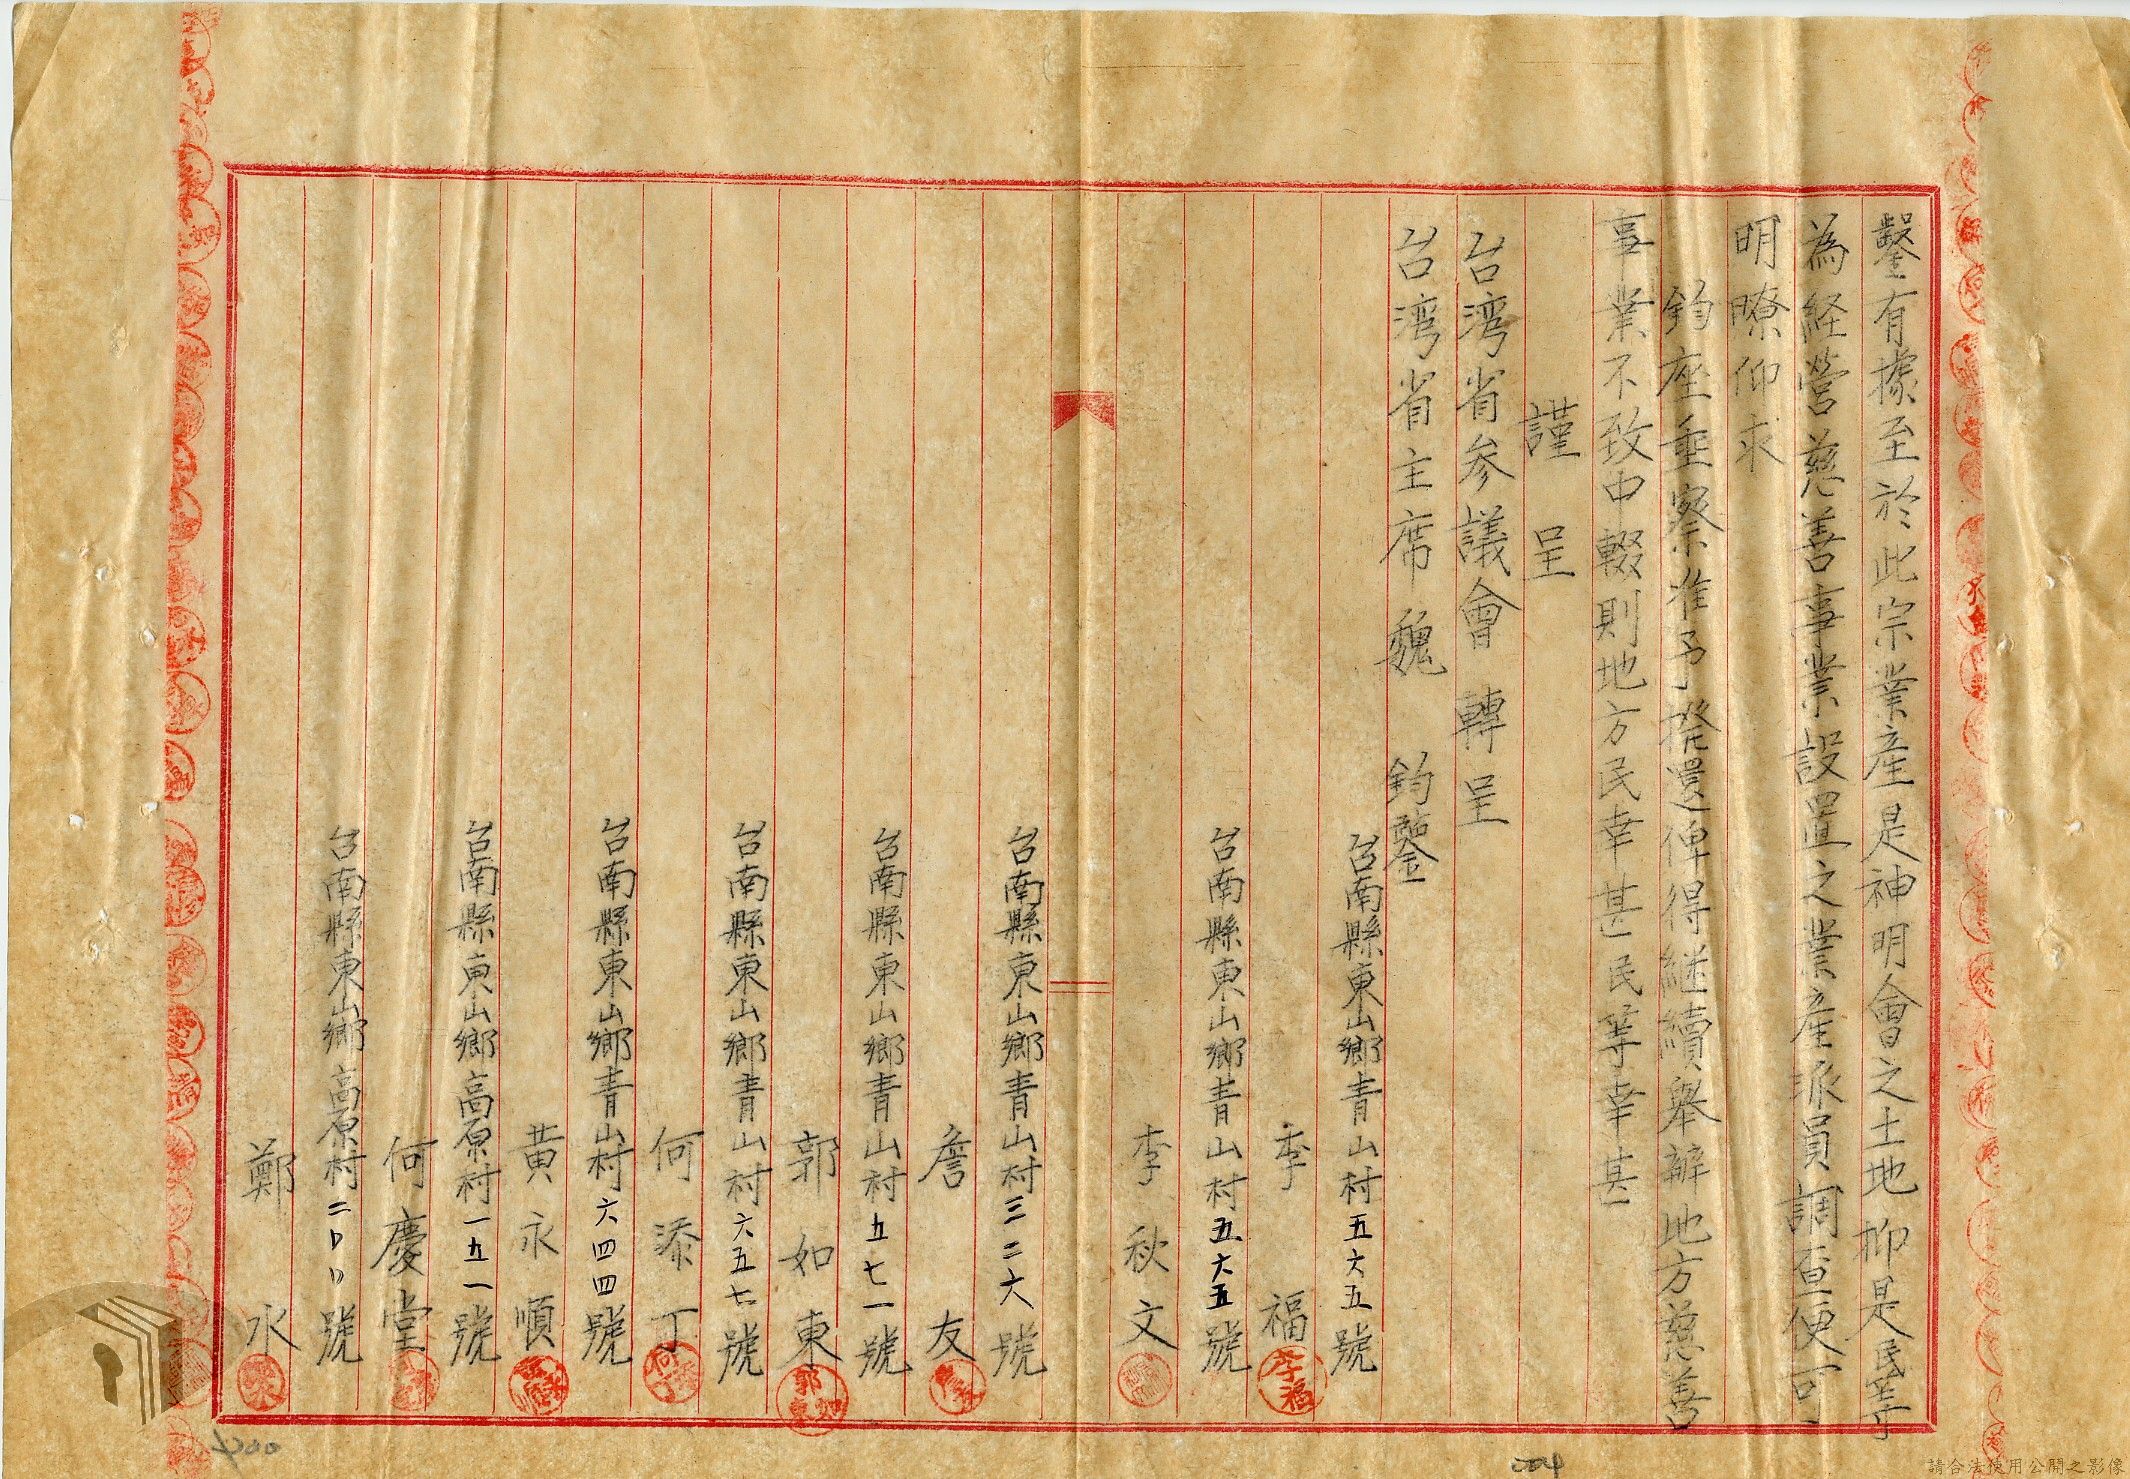 鑿有據至於此宗業產是神明會之土地抑是民等
為経營慈善事業設置之業產派員調查便可
明瞭仰求
鈞座垂察准予發還俾得継續舉辦地方慈善
事業不致中輟則地方民幸甚民等幸甚
謹呈
台湾省参議會 轉呈
台湾省主席 魏 鈞鑒
台南縣東山鄉青山村五六五號
李福
李福
台南縣東山鄉青山村五六五號
李秋文
台南縣東山鄉青山村三二六號
詹友
台南縣東山鄉青山村五七一號
郭如東
郭如東
台南縣東山鄉青山村六五七號
何添丁
台南縣東山鄉青山村六四四號
黄永順
台南縣東山鄉高原村一五一號
何慶堂
台南縣東山鄉高原村二號
鄭水
004
請合法使用公開之影像